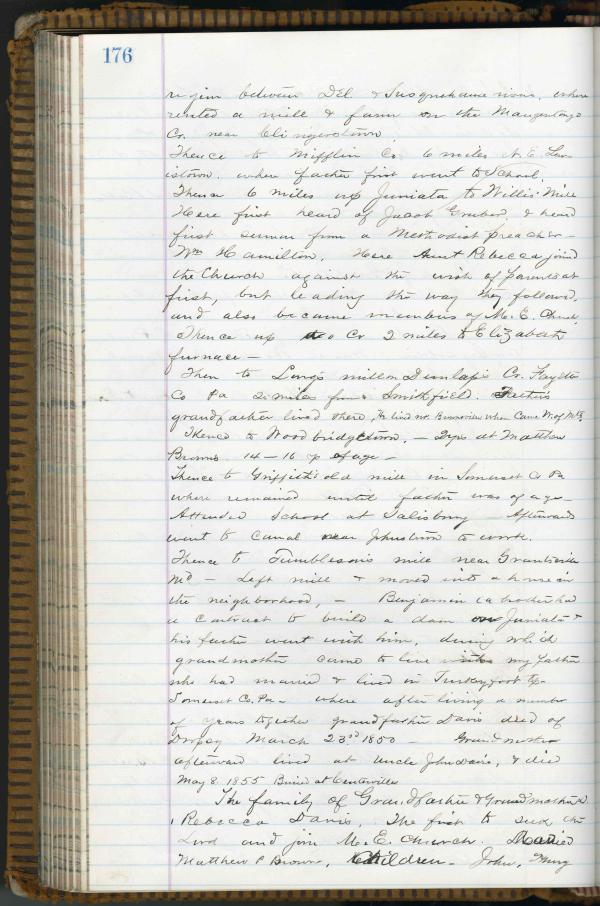 176
region between Del & Susquehanna rivers, where
rented a mill & farm on the Mauyentango
Co. near Clingerstown
Thence to Mifflin Co. 6 miles N. E. Lew
istown. where father first went to School.
Thence 6 miles up Juniata to Willis Mill
Here first heard of Jacob Gruber, & heard
first sermon from a Methodist preacher -
Wm Hamilton, Here Aunt Rebecca joind
the Church against the wish of parents at
first, but leading the way they followed,
and also became members of M. E. Church
Thence up Cr 2 miles to Elizabeth
furnace -
Then to Longs mill on Dunlap's Cr. Fayette
Co Pa 2 miles from Smithfield. Father's
grandfather lived there, He lived nr. Brownsville when Came W. of Mts.
Thence to Woodbridgetown, - 2 yrs at Matthew
Browns 14 - 16 yr of age -
Thence to Griffith's old mill in Somerset Co Pa
where remained until father was of age -
Attended School at Salisbury Afterwards
went to Canal near Johnstown to work.
Thence to Tumbleson's mill near Grantsville
Md - Left mill & moved into a house in
the neighborhood, - Benjamin (a brother had
a contract to build a dam on Juniata &
his father went with him, during which
grandmother came to live my father
who had married & lived in Turkeyfoot tp.
Somerset Co. Pa - where after living a number
of years together grandfather Davis died of
Dropsy March 23rd 1850 - Grandmother
afterward lived at Uncle John Davis, & died
May 8. 1855 Buried at Centerville
The family of Grandfather & Grandmother D.
1 Rebecca Davis, The first to seek the
Lord and join M. E. Church. Married
Matthew P Brown, Children - John,